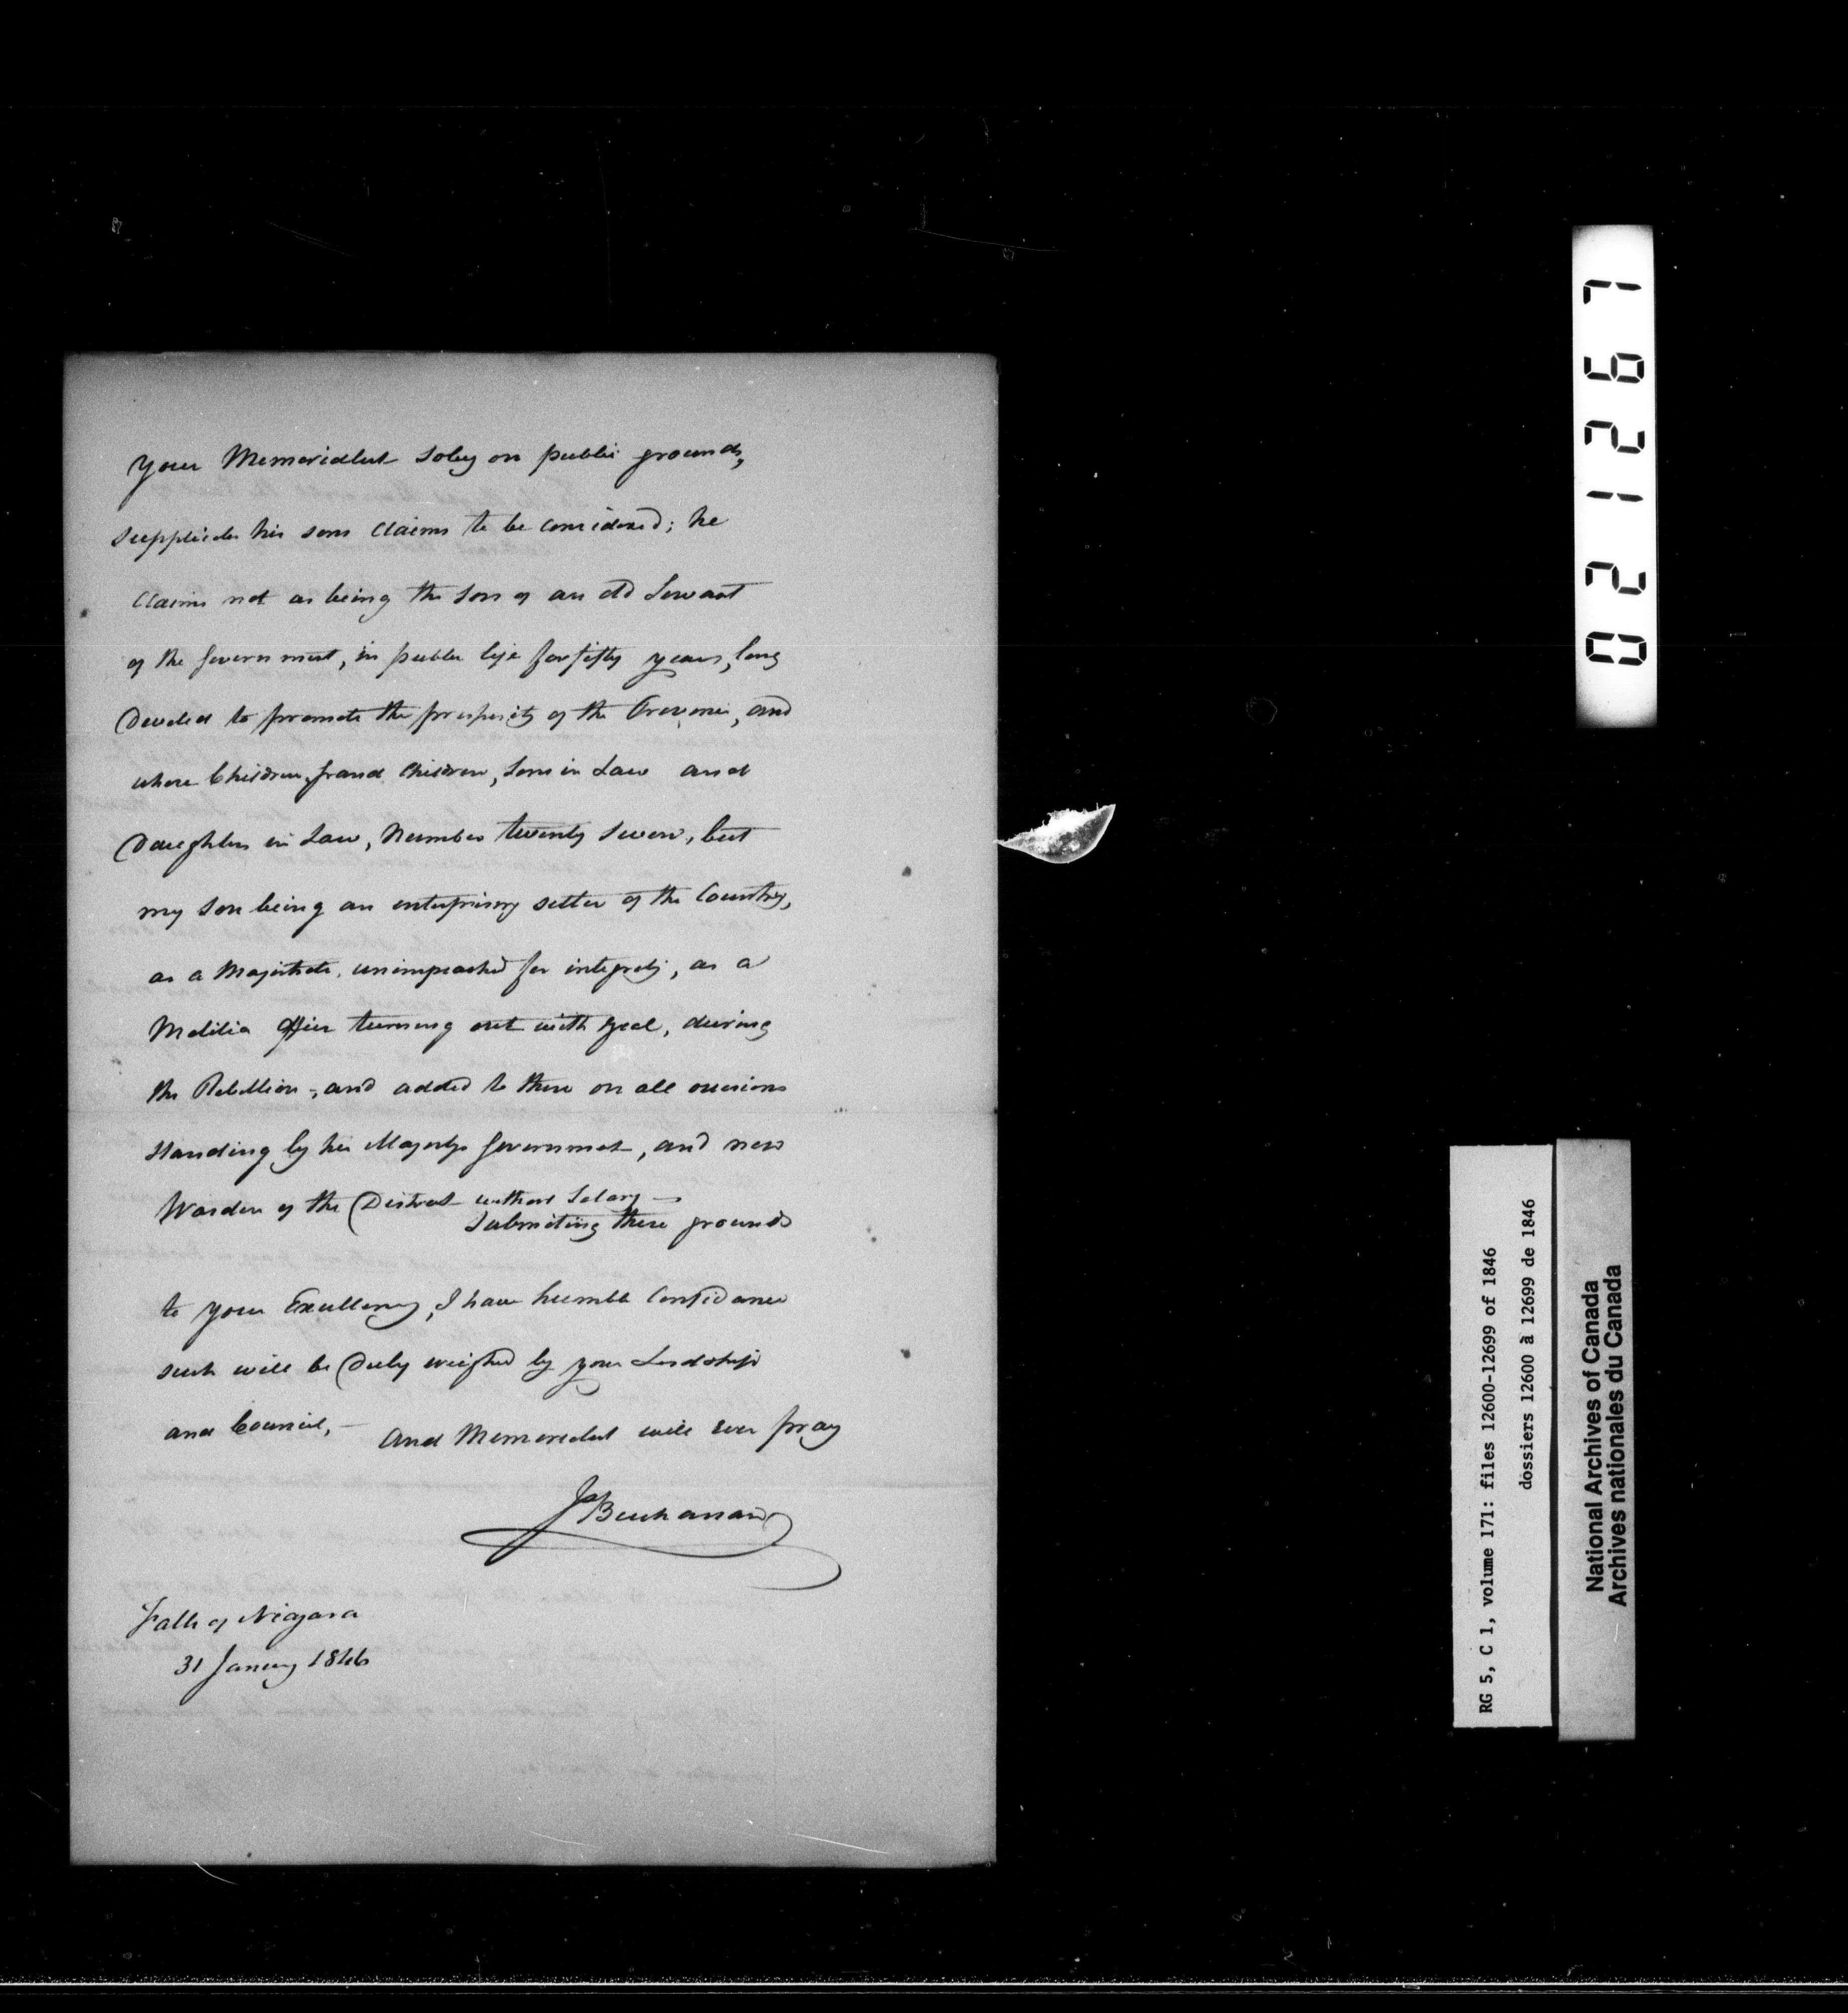 Your Memorialist soley on public grounds,
supplicates his sons claims to be considered; he
claims not as being the son of an old Servant
of the Government, in public life for fifty years, long
Devoted to promote the prosperity of the Province, and
whose Children, Grand Children, Sons in Law and
Daughters in Law, Number twenty seven, but
my son being an enterprising settler of the Country,
as a Magistrate, unimpeached for integrity, as a
Melitia Officer turning out with zeal, during
the Rebellion, and added to these on all occasions
standing by her Majestys Government, and now
Warden of the District without Salary —
Submitting these grounds
to your Excellency, I have humble Confidance
such will be Duly weighed by your Lordship
and Council, — And Memorialist will ever pray
J Buchanan
Falls of Niagara
31 January 1846
021267
RG 5, C 1, volume 171: files 12600-12699 of 1846
dossiers 12600 à 12699 de 1846
National Archives of Canada
Archives nationales du Canada